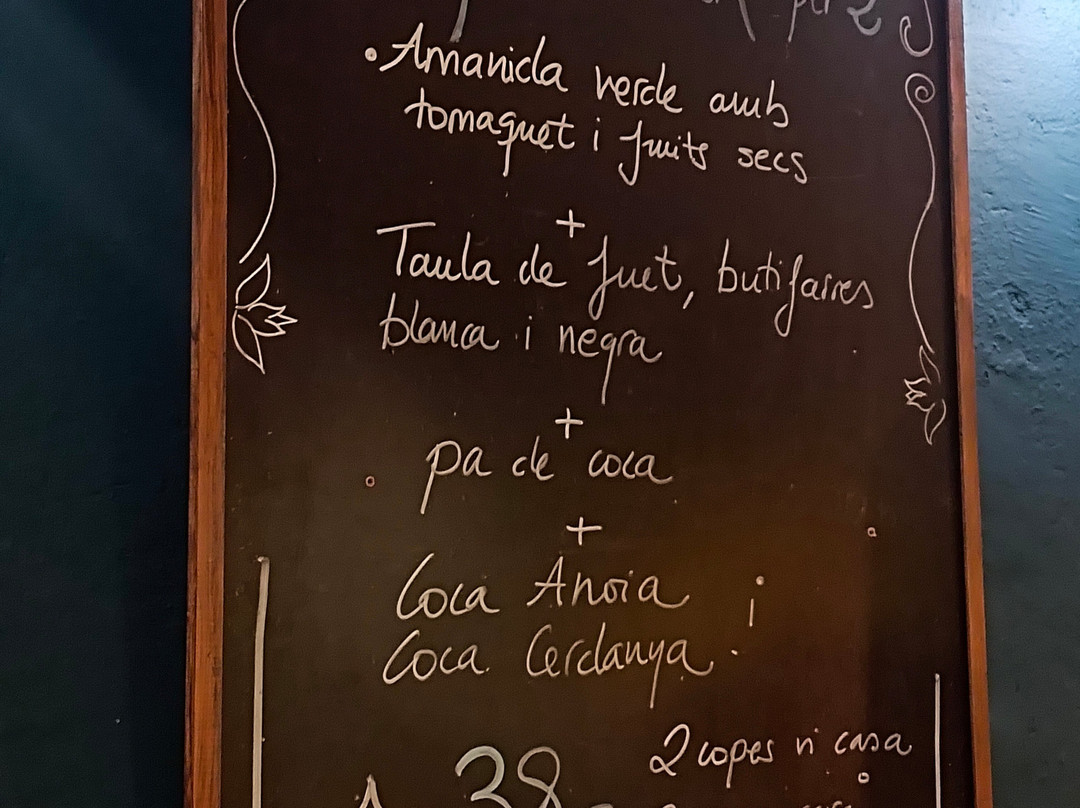 per 2
• Amanida verde amb
tomaquet i fruits secs
+
Taula de fuet, butifarres
blanca i negra
+
pa de coca
+
Coca Anoia i
Coca Cerdanya.
2 copes vi casa
38